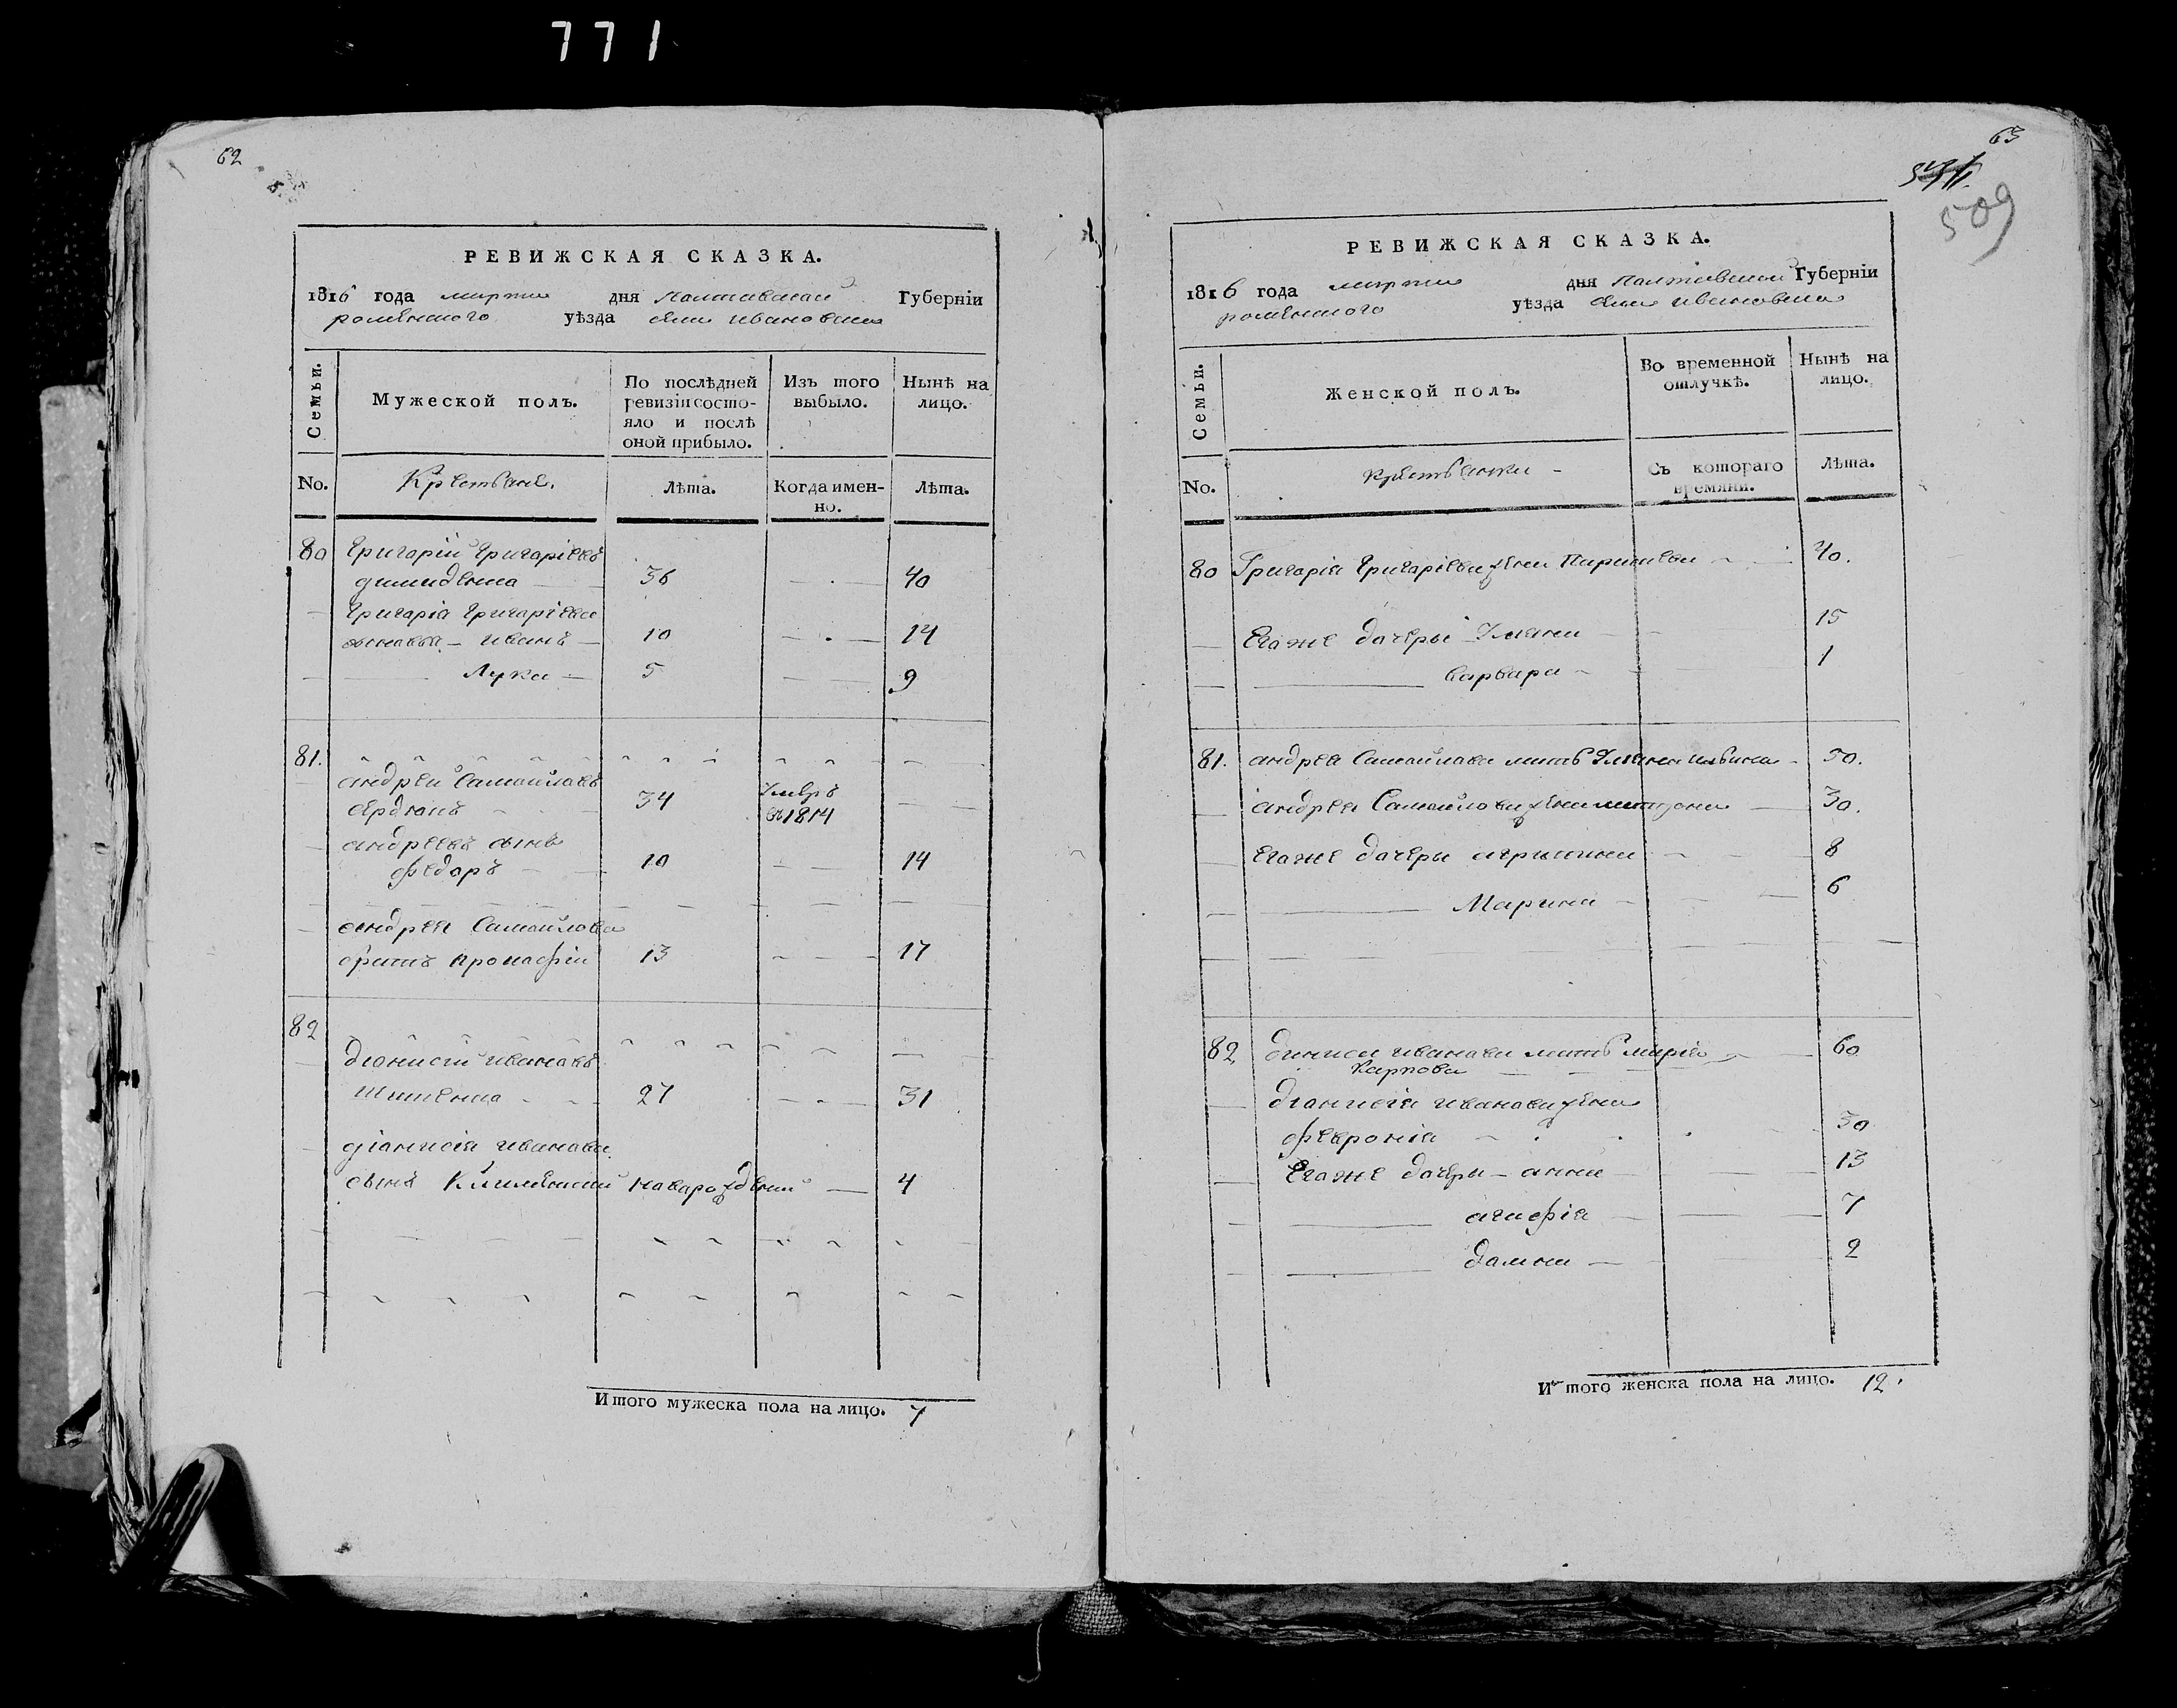 771
62
РЕВИЖСКАЯ СКАЗКА.
1816 года марта дня Полтавской Губерніи
роменского уѣзда села Ивановки
Семьи.
Мужеской полъ.
По послѣдней ревизіи состо-
яло и послѣ
оной прибыло.
Изъ того
выбыло.
Нынѣ на
лицо.
No.
Крестьяне.
Лѣта.
Когда имен-
но.
Лѣта.
80 Григорій Григоріевъ
36 40
Григорія Григоріева
сыновья - иванъ 10 14
Лука 5 9
81.
андрей Самойловъ
34 Умеръ
въ 1814
андреевъ сынъ
федоръ 10 14
андрея Самойлова
братъ 13 17
82
діонисій ивановъ
27 31
діонисія иванова
сынъ новорожденный 4
Итого мужеска пола на лицо. 7
63
509
РЕВИЖСКАЯ СКАЗКА.
1816 года марта дня Полтавской Губерніи
роменского уѣзда села Ивановки
Семьи.
Женской полъ.
Во временной
отлучкѣ.
Нынѣ на
лицо.
No.
крестьянки
Съ котораго
времяни.
Лѣта.
80 Григорія Григоріева жена 40.
Егоже дочеры Уляна 15
варвара 1
81. андрея Самойлова мать Уляна 50.
андрея Самойлова жена 30.
Егоже дочеры 8
Марина 6
82 иванова мать марія 60
Карпова
діонисія иванова жена
февронія 30
Егоже дочеры - анна 13
агафія 7
домна 2
Итого женска пола на лицо. 12.